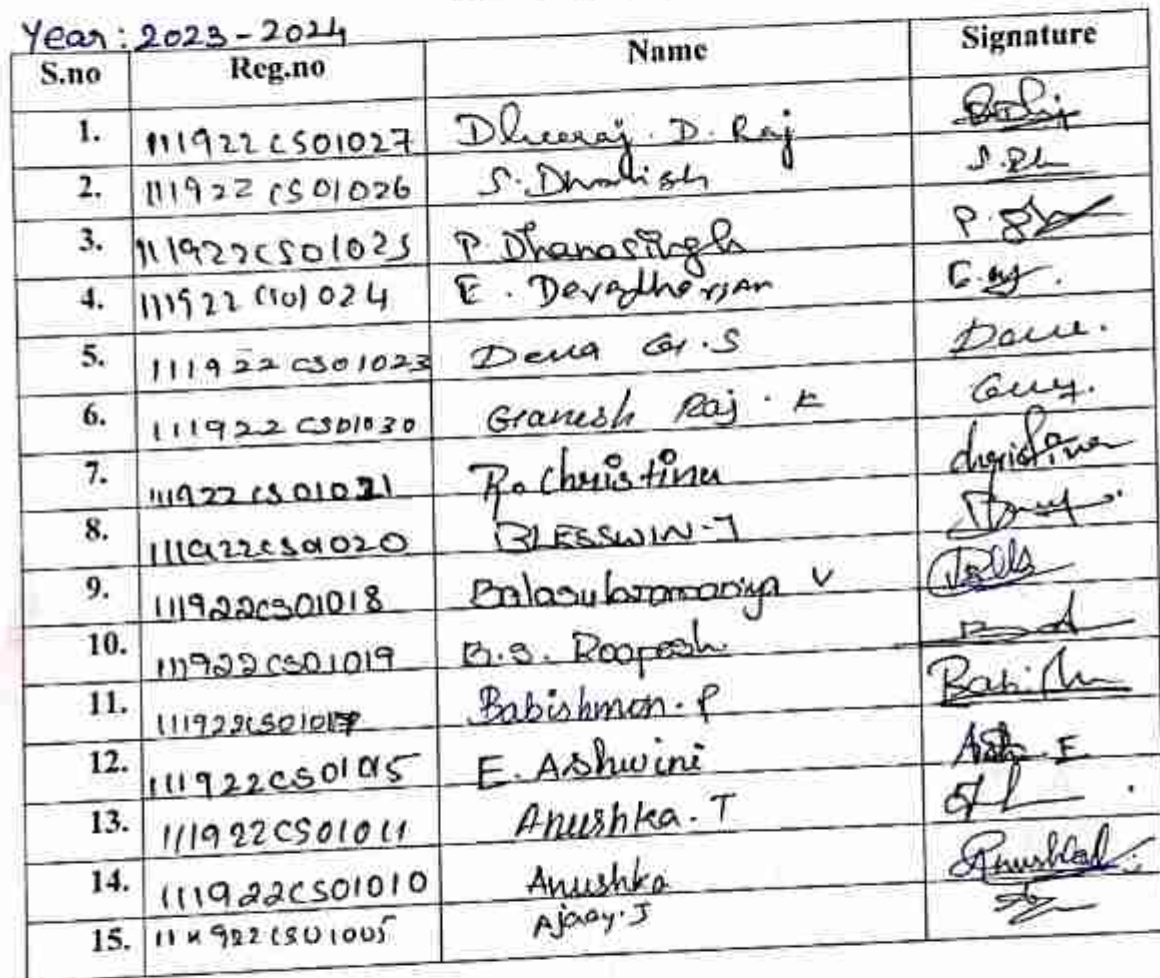 Year: 2023-2024
S.no Reg.no Name Signature
1. 111922CS01027 Dheeraj. D. Raj
2. 111922CS01026 S. Dhanish
3. 111922CS01025 P Dhanasingh P.
4. 111922CS01024 E. Devadharsan E.
5. 111922CS01023 Dena G.S
6. 111922CS01030 Granesh Raj. K
7. 111922CS01021 R. Christina christina
8. 111922CS01020 BLESSWIN-J
9. 111922CS01018 Balasubramaniya V
10. 111922CS01019 B.S. Roopesh
11. 111922CS01017 Babishmon. P
12. 111922CS01015 E. Ashwini
13. 111922CS01011 Anushka. T
14. 111922CS01010 Anushka
15. 111922CS01005 Ajaay. J